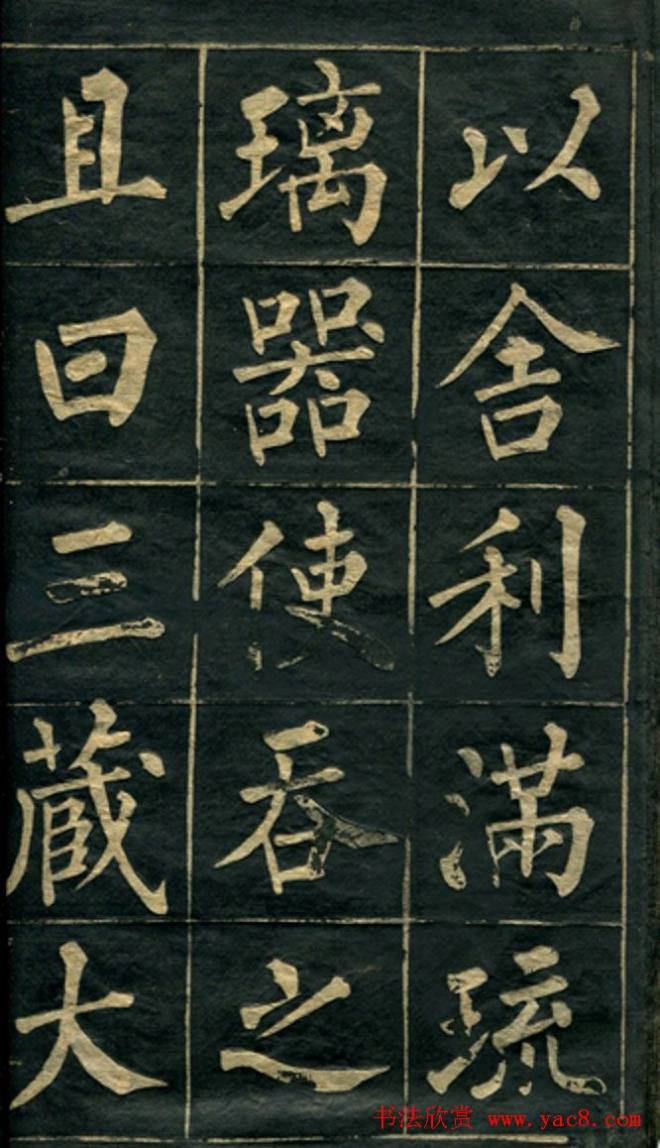 以舍利满琉
璃器使吞之
且曰三藏大
书法欣赏 www.yac8.com